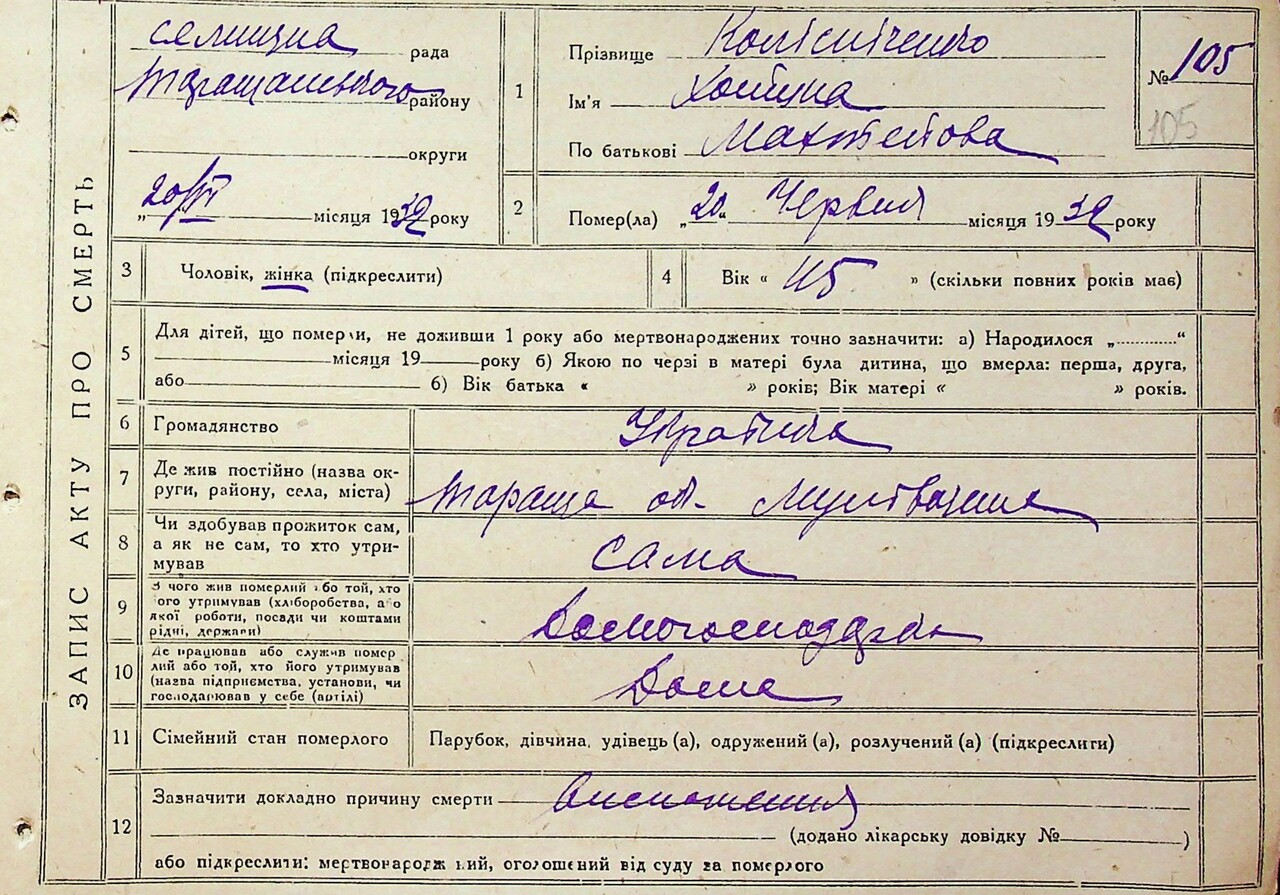 ЗАПИС АКТУ ПРО СМЕРТЬ
селищна рада
Таращанського району
округи
„20/VI місяця 1932 року
1
Прізвище
Ім'я
По батькові
№ 105
105
2
Помер(ла) „20“ Червня місяця 1932 року
3 Чоловік, жінка (підкреслити)
4 Вік « 45 » (скільки повних років має)
5
Для дітей, що померли, не доживши 1 року або мертвонароджених точно зазначити: а) Народилося „ “
місяця 19 року б) Якою по черзі в матері була дитина, що вмерла: перша, друга,
або б) Вік батька « » років; Вік матері « » років.
6 Громадянство
7 Де жив постійно (назва ок-
руги, району, села, міста)
Тараща
8 Чи здобував прожиток сам,
а як не сам, то хто утри-
мував
сама
9 З чого жив померлий або той, хто
його утримував (хліборобства, або
якої роботи, посади чи коштами
рідні, держави)
Домогосподарка
10 Де працював або служив помер
лий або той, хто його утримував
(назва підприємства, установи, чи
господарював у себе (артілі)
Дома
11 Сімейний стан померлого Парубок, дівчина, удівець (а), одружений (а), розлучений (а) (підкреслити)
12
Зазначити докладно причину смерти
(додано лікарську довідку № )
або підкреслити: мертвонароджений, оголошений від суду за померлого